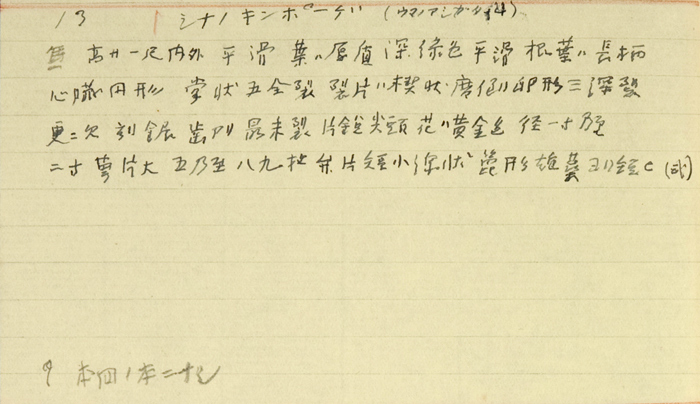 13 シナノキンポーゲ (ウマノアシガタ科)
高サ一尺内外 平滑 葉ハ厚質 深緑色 平滑 根葉ハ長柄
心臓円形 掌状五全裂 裂片ハ楔状 広倒卵形 三深裂
更ニ欠刻鋸歯 最末裂片鋭尖頭 花ハ黄金色 径一寸乃至
二寸 萼片大 五乃至八九枚 弁片短小 線状 箆形 雄蕊ヨリ短シ
本州ノ本ニナシ